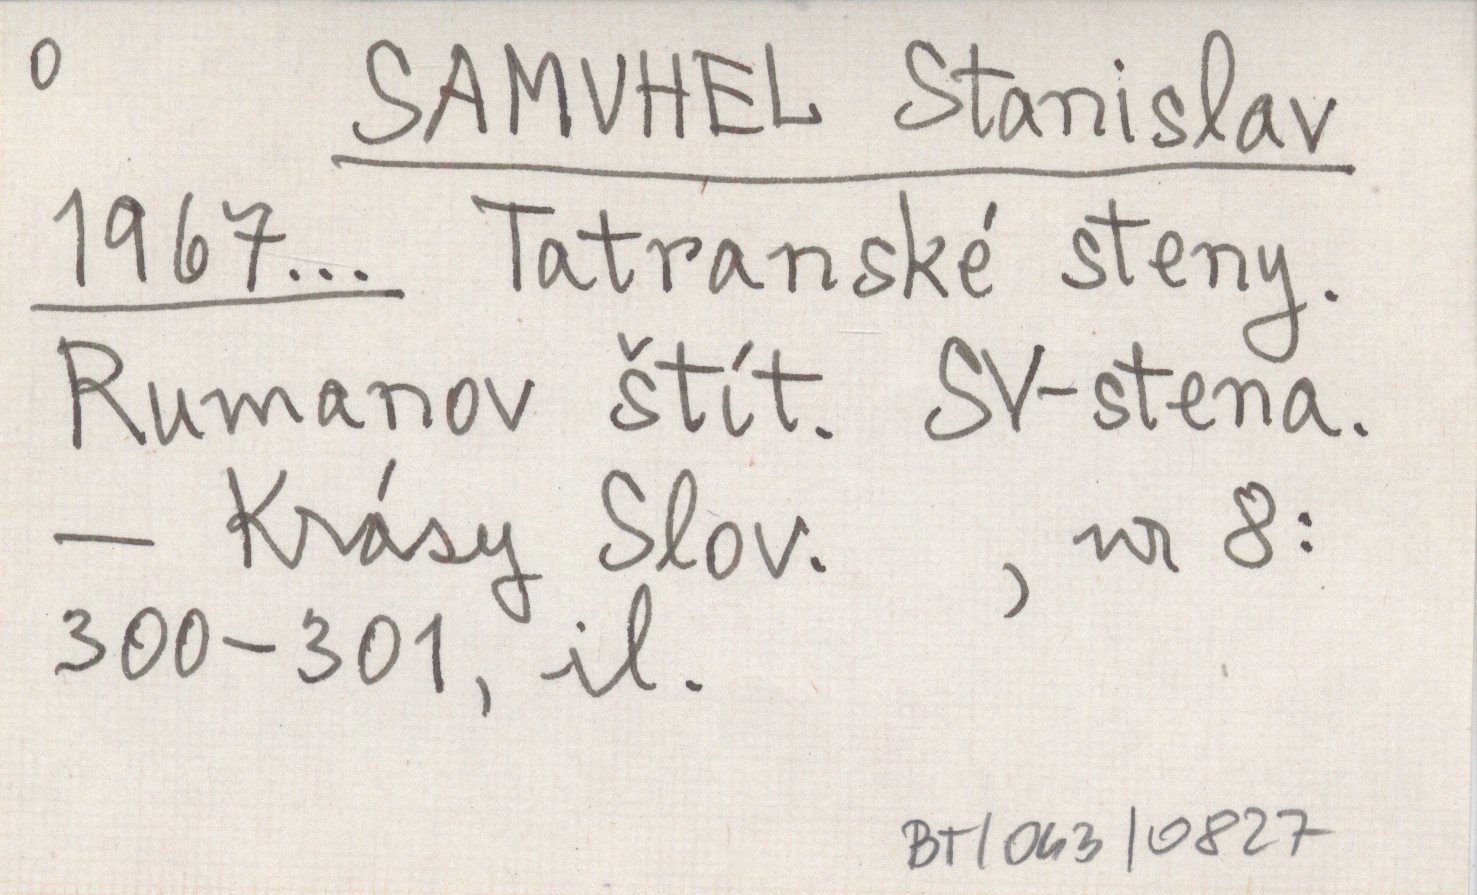 0 SAMUHEL Stanislav
1967... Tatranské steny.
Rumanov štít. SV-stena.
— Krásy Slov. , nr 8:
300-301, il.
BT/043/0827